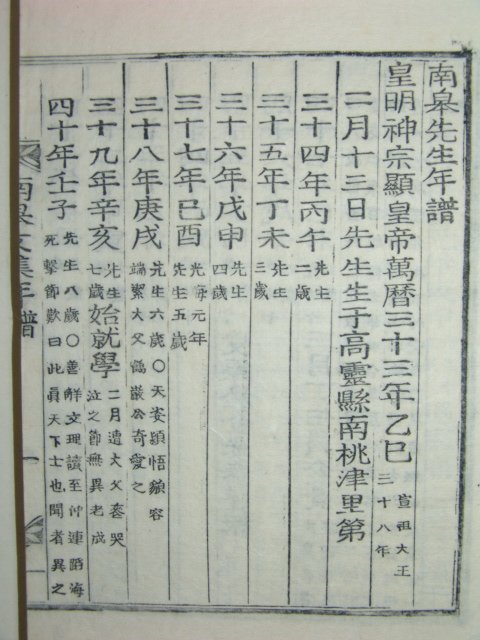 南皐先生年譜
皇明神宗顯皇帝萬曆三十三年乙巳 宣祖大王三十八年
二月十三日先生生于高靈縣南桃津里第
三十四年丙午 先生二歲
三十五年丁未 先生三歲
三十六年戊申 先生四歲
三十七年己酉 光海元年先生五歲
三十八年庚戌 先生六歲○天姿穎悟貌容端潔大父爲嚴公奇愛之
三十九年辛亥 先生七歲 始就學 二月遭大父喪哭泣之節無異老成
四十年壬子 先生八歲○善解文理讀至仲連蹈海死擊節歎曰此眞天下士也聞者異之
南皐文集年譜 一